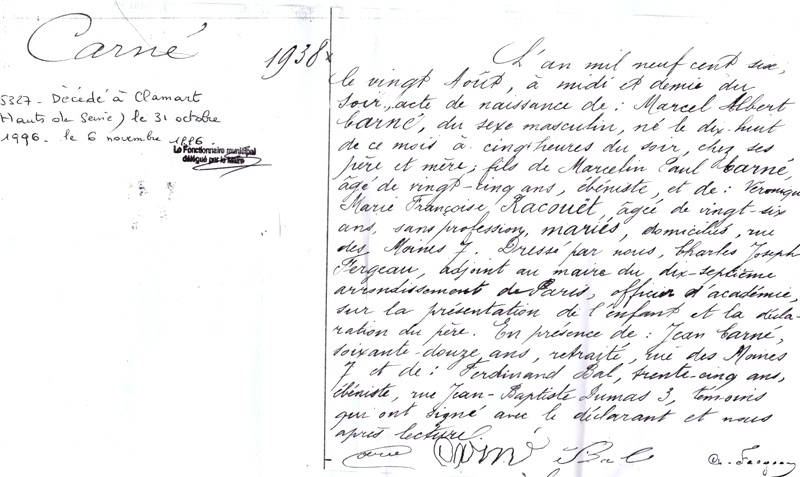 Carné
1938
5327 - Décédé à Clamart
Hauts de Seine) le 31 octobre
1996. le 6 novembre 1996.
Le Fonctionnaire municipal
délégué par le Maire
L'an mil neuf cent six,
le vingt Août, à midi et demie du
soir, acte de naissance de : Marcel Albert
Carné, du sexe masculin, né le dix huit
de ce mois à cinq heures du soir, chez ses
père et mère ; fils de Marcelin Paul Carné,
âgé de vingt-cinq ans, ébéniste, et de : Véronique
Marie Françoise Racouët, âgée de vingt-six
ans, sans profession, mariés, domiciliés, rue
des Moines 7. Dressé par nous, Charles Joseph
Fergeau, adjoint au maire du dix-septième
arrondissement de Paris, officier d'académie,
sur la présentation de l'enfant et la décla-
ration du père. En présence de : Jean Carné,
soixante-douze ans, retraité, rue des Moines
7 et de : Ferdinand Bal, trente-cinq ans,
ébéniste, rue Jean-Baptiste Dumas 3, témoins
qui ont signé avec le déclarant et nous
après lecture.
Bal